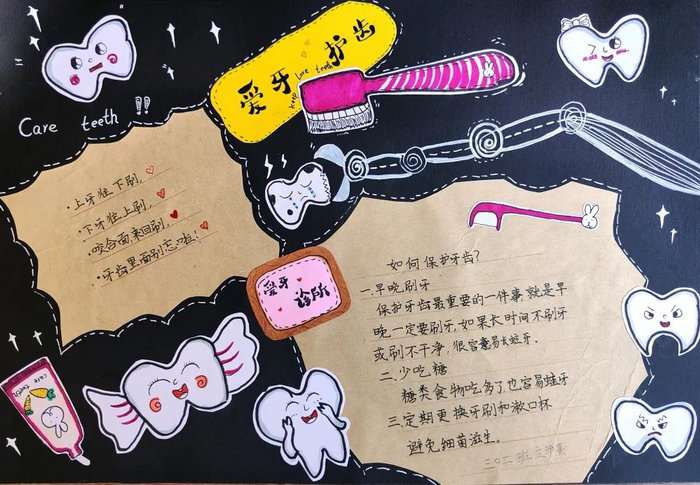 爱牙护齿
keep Love teeth
Care teeth !!
·上牙往下刷,
·下牙往上刷,
·咬合面来回刷,
·牙齿里面别忘啦!
爱牙
诊所
如何保护牙齿?
一.早晚刷牙
保护牙齿最重要的一件事就是早
晚一定要刷牙.如果长时间不刷牙
或刷不干净.很容易长蛀牙.
二.少吃糖
糖类食物吃多了也容易蛀牙
三定期更换牙刷和漱口杯
避免细菌滋生。
二〇二班